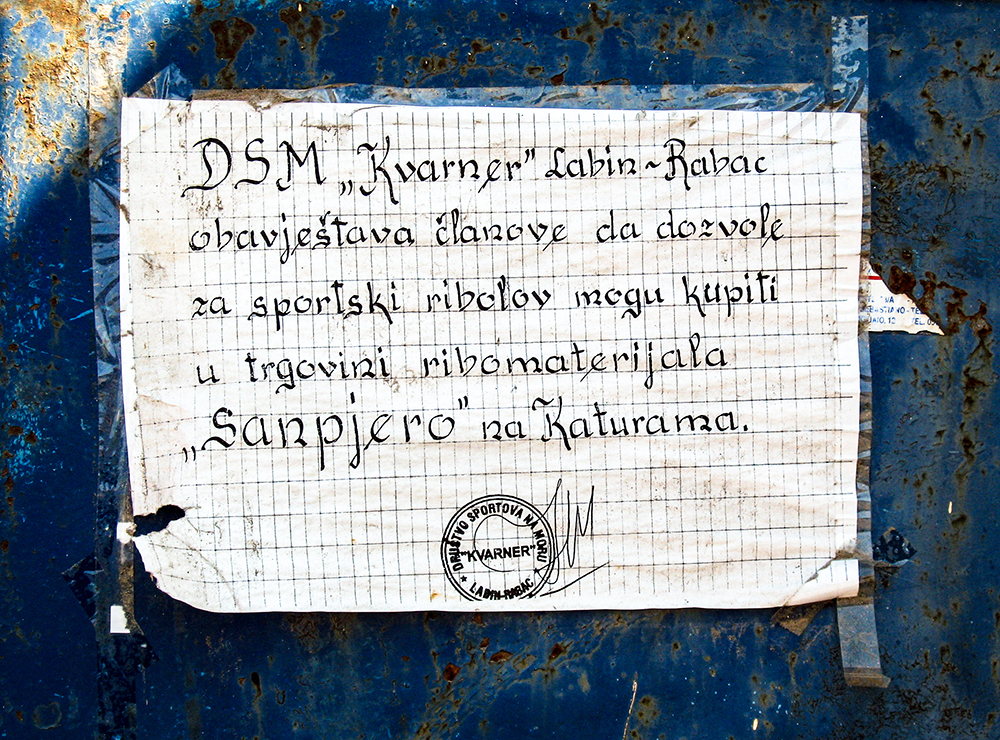 DSM „Kvarner" Labin~Rabac
obavještava članove da dozvole
za sportski ribolov mogu kupiti
u trgovini ribomaterijala
„Sanpjero" na Katurama.
DRUŠTVO SPORTOVA NA MORU
"KVARNER"
★ LABIN-RABAC ★